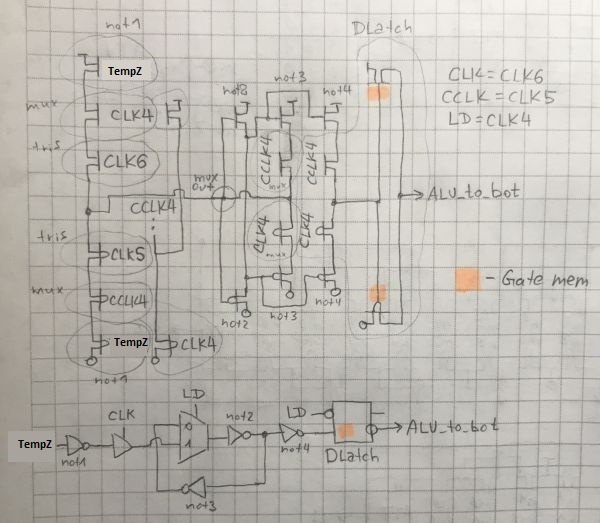 not1
DLatch
TempZ
not2
not3
not4
CLK = CLK6
CCLK = CLK5
LD = CLK4
mux
CLK4
CCLK4
CLK4
mux
tris
CLK6
mux
out
CCLK4
ALU_to_bot
tris
CLK5
CLK4
CLK4
mux
mux
CCLK4
- Gate mem
TempZ
CLK4
not2
not3
not4
not1
LD
CLK
not2
LD
0
1
ALU_to_bot
TempZ
not1
not4
DLatch
not3